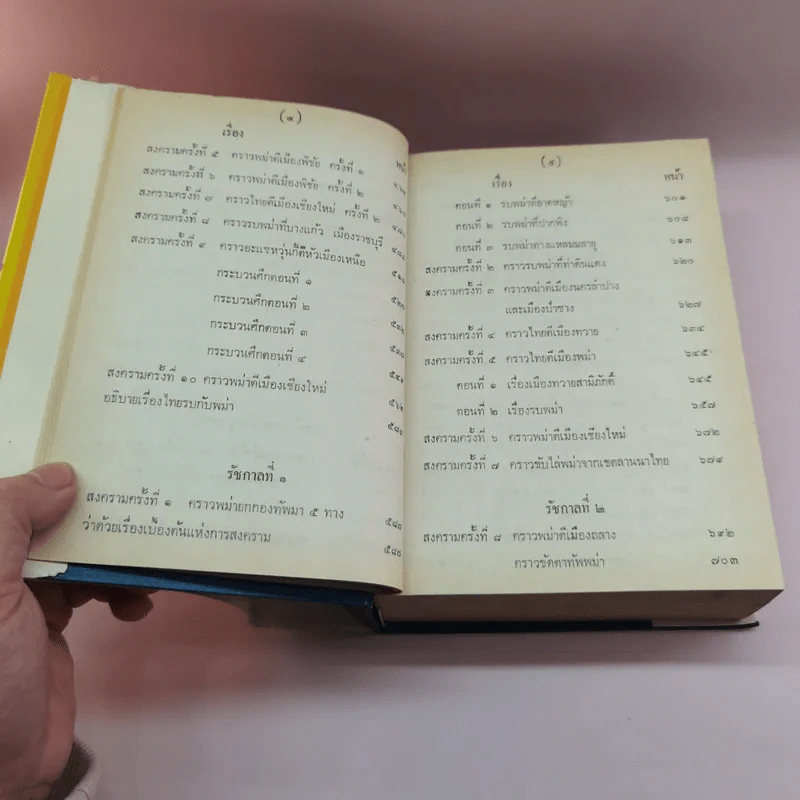 (๔)
เรื่อง
หน้า
สงครามครั้งที่ ๕ คราวพม่าตีเมืองพิชัย ครั้งที่ ๑
สงครามครั้งที่ ๖ คราวพม่าตีเมืองพิชัย ครั้งที่ ๒
สงครามครั้งที่ ๗ คราวไทยตีเมืองเชียงใหม่ ครั้งที่ ๒
สงครามครั้งที่ ๘ คราวรบพม่าที่บางแก้ว เมืองราชบุรี
สงครามครั้งที่ ๙ คราวอะแซหวุ่นกี้ตีหัวเมืองเหนือ
กระบวนศึกตอนที่ ๑
กระบวนศึกตอนที่ ๒
กระบวนศึกตอนที่ ๓
กระบวนศึกตอนที่ ๔
สงครามครั้งที่ ๑๐ คราวพม่าตีเมืองเชียงใหม่
อธิบายเรื่องไทยรบกับพม่า
รัชกาลที่ ๑
สงครามครั้งที่ ๑ คราวพม่ายกกองทัพมา ๕ ทาง
ว่าด้วยเรื่องเบื้องต้นแห่งการสงคราม
(๕)
เรื่อง หน้า
ตอนที่ ๑ รบพม่าที่ลาดหญ้า ๖๐๑
ตอนที่ ๒ รบพม่าที่ปากพิง ๖๐๘
ตอนที่ ๓ รบพม่าทางแหลมมลายู ๖๑๓
สงครามครั้งที่ ๒ คราวรบพม่าที่ท่าดินแดง ๖๒๐
สงครามครั้งที่ ๓ คราวพม่าตีเมืองนครลำปาง
และเมืองป่าซาง ๖๒๗
สงครามครั้งที่ ๔ คราวไทยตีเมืองทวาย ๖๓๔
สงครามครั้งที่ ๕ คราวไทยตีเมืองพม่า ๖๔๕
ตอนที่ ๑ เรื่องเมืองทวายสามิภักดิ์ ๖๔๕
ตอนที่ ๒ เรื่องรบพม่า ๖๕๗
สงครามครั้งที่ ๖ คราวพม่าตีเมืองเชียงใหม่ ๖๗๒
สงครามครั้งที่ ๗ คราวขับไล่พม่าจากเขตลานนาไทย ๖๗๙
รัชกาลที่ ๒
สงครามครั้งที่ ๘ คราวพม่าตีเมืองถลาง ๖๙๒
คราวขัดตาทัพพม่า ๗๐๓